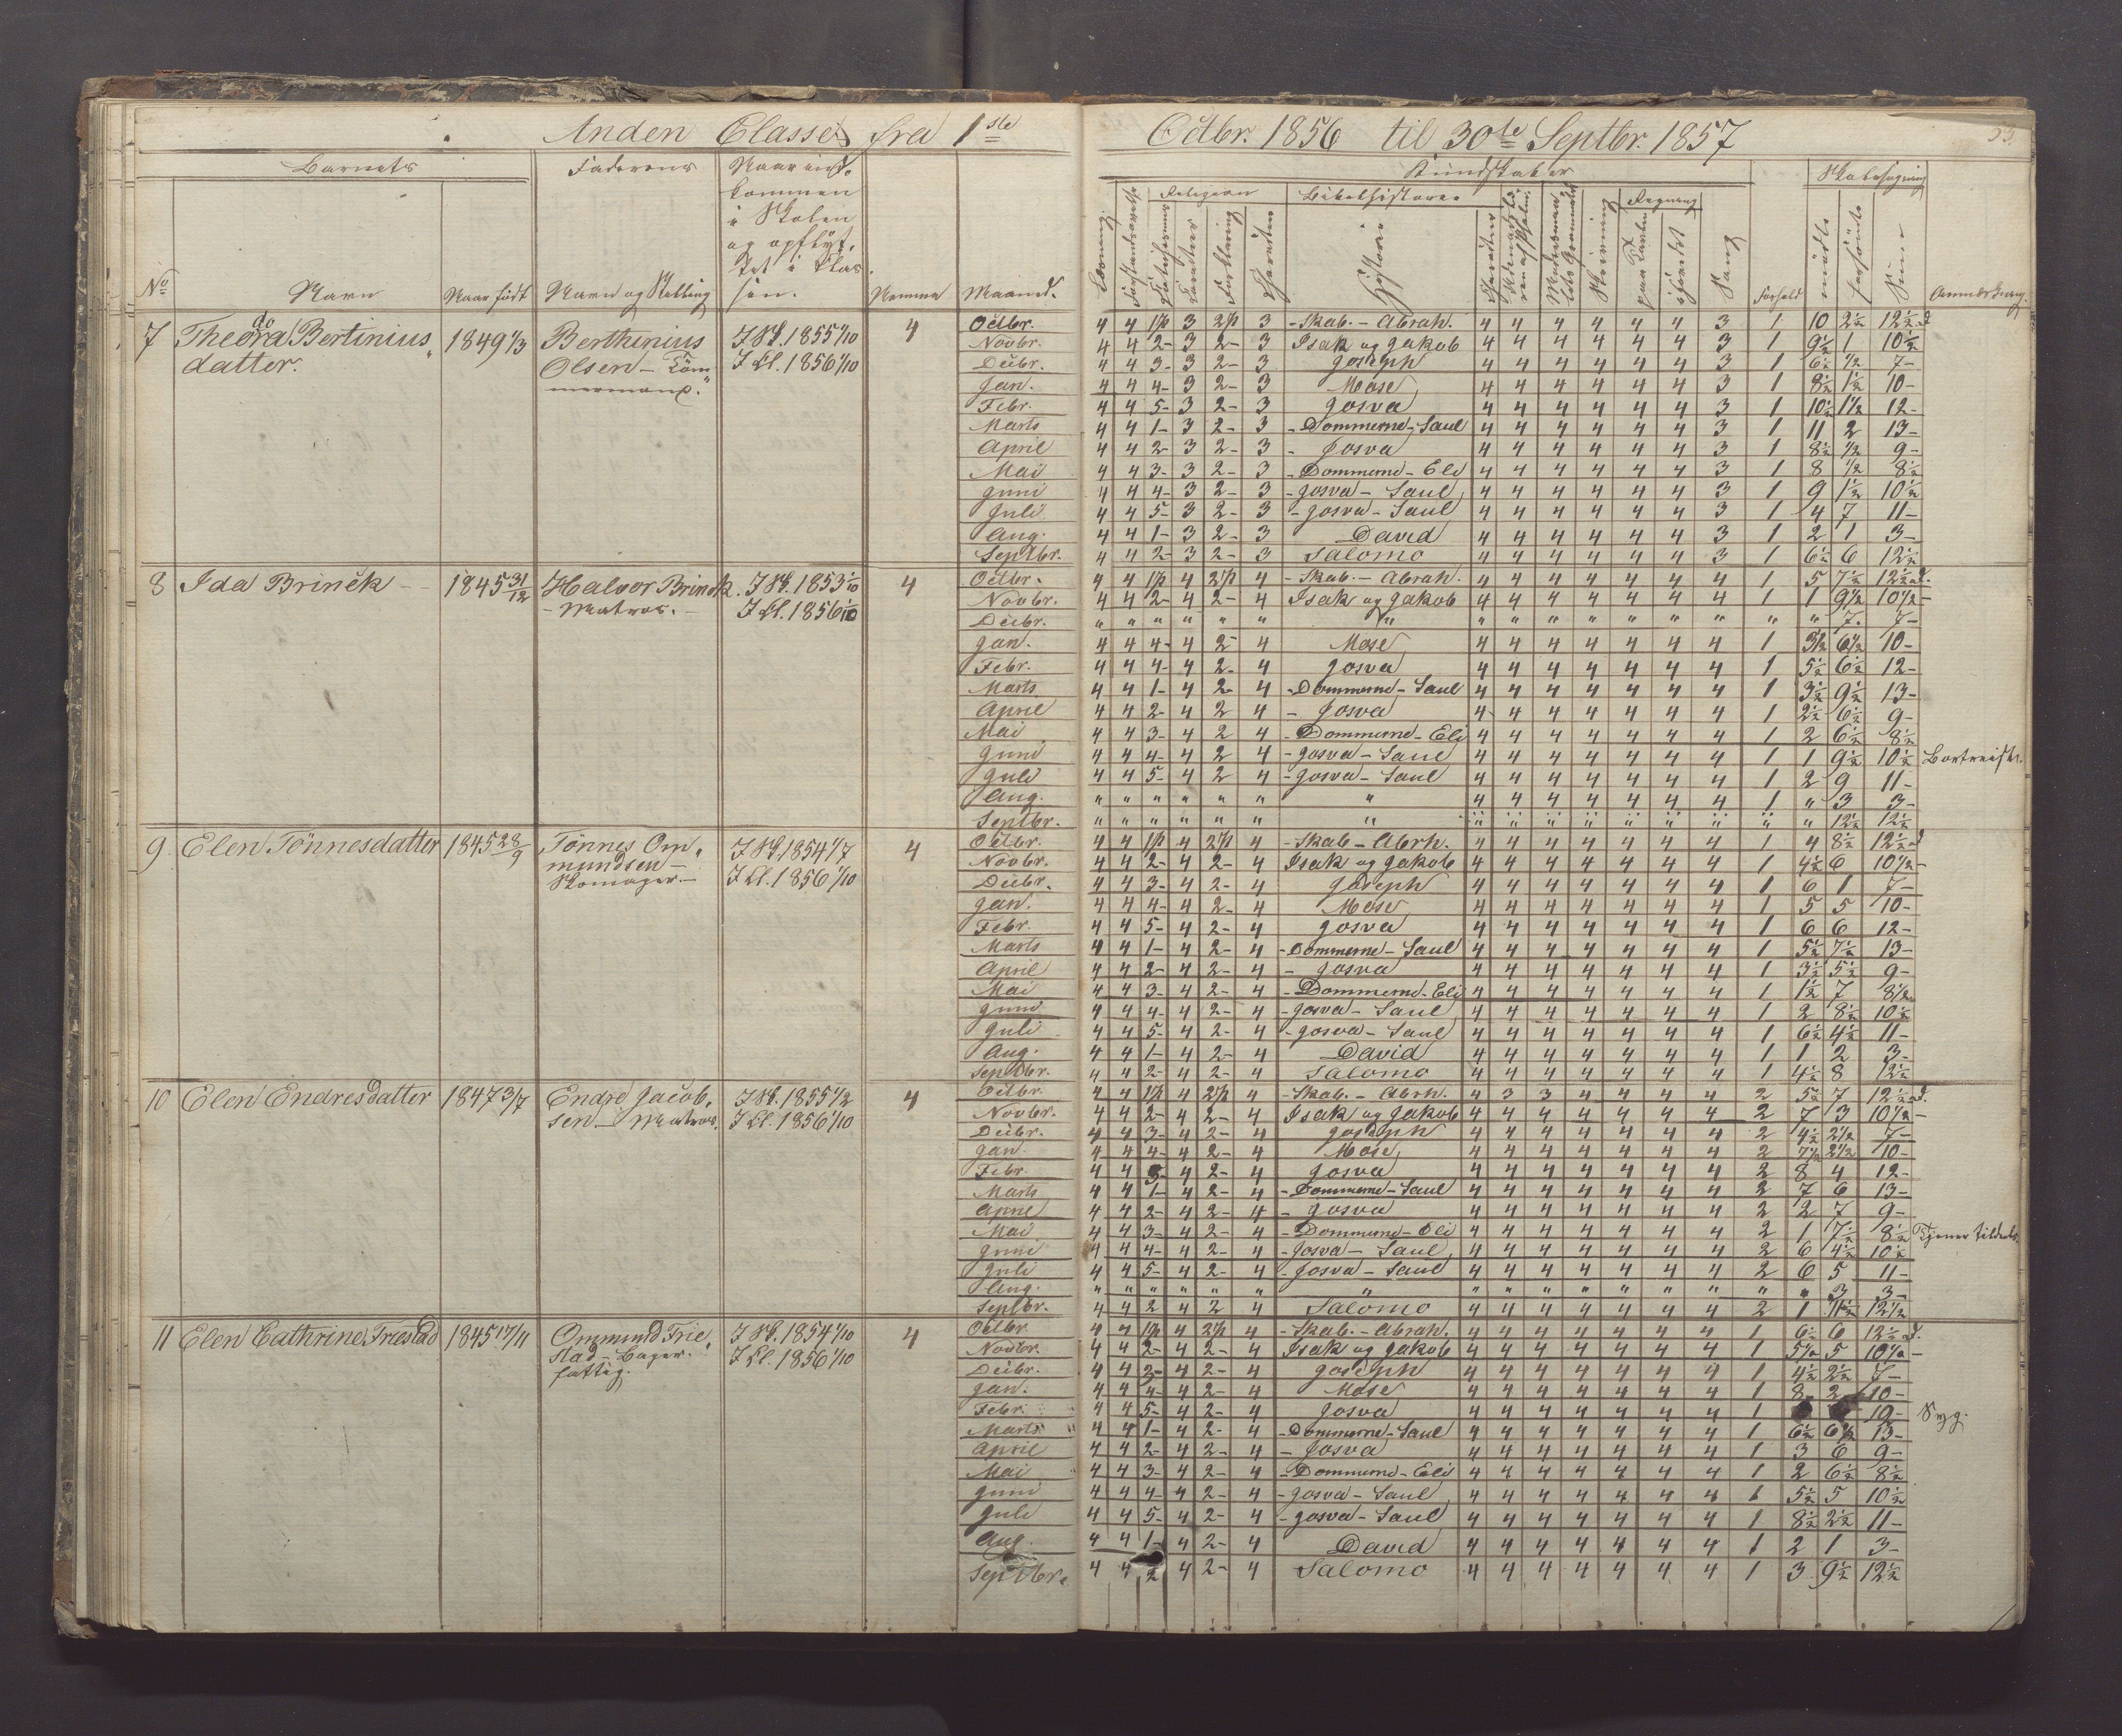 Anden Classe fra 1ste Octbr. 1856 til 30te Septbr. 1857
53.
Barnets
Faderens
Naar ind-
kommen
i Skolen
og opflyt-
tet i Klas-
sen.
No
Navn
Naar født
Navn og Stilling
Nemme
Maaned.
Kundskaber
Skolesøgning
Religion
Bibelhistorie
Regning
Læsning
Historie
Skrivning
paa Tavlen
i Hovedet
Sang
Forhold
mødte
forsømte
Summa
7 Theodora Bertinius- 1849 1/3 Berthinius I Sk. 1855 1/10 4
datter. Olsen – Töm- I Kl. 1856 1/10
mermand.
Octbr. 4 4 1ste P 3 2 P 3 - Skab. - Abrah. 4 4 4 4 4 4 3 1 10 2½ 12½ d.
Novbr. 4 4 2- 3 2- 3 Isak og Jakob 4 4 4 4 4 4 3 1 9½ 1 10½
Decbr. 4 4 3- 3 2- 3 Joseph 4 4 4 4 4 4 3 1 6½ ½ 7-
Jan. 4 4 4- 3 2- 3 Mose 4 4 4 4 4 4 3 1 8½ 1½ 10-
Febr. 4 4 5- 3 2- 3 Josva 4 4 4 4 4 4 3 1 10½ 1½ 12-
Marts 4 4 1- 3 2- 3 - Dommerne - Saul 4 4 4 4 4 4 3 1 11 2 13-
April 4 4 2 3 2- 3 - Josva 4 4 4 4 4 4 3 1 8½ ½ 9-
Mai 4 4 3- 3 2- 3 - Dommerne - Eli 4 4 4 4 4 4 3 1 8 ½ 8½
Juni 4 4 4- 3 2- 3 - Josva - Saul 4 4 4 4 4 4 3 1 9 1½ 10½
Juli 4 4 5- 3 2- 3 - Josva - Saul 4 4 4 4 4 4 3 1 4 7 11-
Aug. 4 4 1- 3 2- 3 David 4 4 4 4 4 4 3 1 2 1 3-
Septbr. 4 4 2- 3 2- 3 Salomo 4 4 4 4 4 4 3 1 6½ 6 12½
8 Ida Brinck – 1845 31/12 Halvor Brinck. I Sk. 1853 1/10 4
- Matros. - I Kl. 1856 1/10
Octbr. 4 4 1 P 4 2 P 4 - Skab. - Abrah. 4 4 4 4 4 4 4 1 5 7½ 12½ d.
Novbr. 4 4 2- 4 2- 4 Isak og Jakob 4 4 4 4 4 4 4 1 1 9½ 10½-
Decbr. " " " " " " " " " " " " " " " " 7. 7-
Jan. 4 4 4- 4 2- 4 Mose 4 4 4 4 4 4 4 1 3½ 6½ 10-
Febr. 4 4 4- 4 2- 4 Josva 4 4 4 4 4 4 4 1 5½ 6½ 12-
Marts 4 4 1- 4 2- 4 - Dommerne - Saul 4 4 4 4 4 4 4 1 3½ 9½ 13-
April 4 4 2- 4 2 4 - Josva 4 4 4 4 4 4 4 1 2½ 6½ 9-
Mai 4 4 3- 4 2 4 - Dommerne - Eli 4 4 4 4 4 4 4 1 2 6½ 8½
Juni 4 4 4- 4 2 4 - Josva - Saul 4 4 4 4 4 4 4 1 1 9½ 10½ Bortreist.
Juli 4 4 5- 4 2 4 - Josva - Saul 4 4 4 4 4 4 4 1 2 9 11-
Aug. " " " " " " " 4 4 4 4 4 4 4 1 " 3 3-
Septbr. " " " " " " " " " " " " " " " " 12½ 12½
9 Elen Tönnesdatter 1845 28/9 Tönnes Om- I Sk. 1854 1/7 4
mundsen – I Kl. 1856 1/10
Skomager. –
Octbr. 4 4 1 P 4 2 P 4 - Skab - Abrh. 4 4 4 4 4 4 4 1 4 8½ 12½ d
Novbr. 4 4 2- 4 2- 4 Isak og Jakob 4 4 4 4 4 4 4 1 4½ 6 10½-
Decbr. 4 4 3- 4 2- 4 Joseph 4 4 4 4 4 4 4 1 6 1 7-
Jan. 4 4 4- 4 2- 4 Mose 4 4 4 4 4 4 4 1 5 5 10-
Febr. 4 4 5- 4 2- 4 Josva 4 4 4 4 4 4 4 1 6 6 12-
Marts 4 4 1- 4 2- 4 - Dommerne - Saul 4 4 4 4 4 4 4 1 5½ 7½ 13-
April 4 4 2- 4 2- 4 - Josva 4 4 4 4 4 4 4 1 3½ 5½ 9-
Mai 4 4 3- 4 2- 4 - Dommerne - Eli 4 4 4 4 4 4 4 1 1½ 7 8½
Juni 4 4 4- 4 2- 4 - Josva - Saul 4 4 4 4 4 4 4 1 2 8½ 10½
Juli 4 4 5- 4 2- 4 - Josva - Saul 4 4 4 4 4 4 4 1 6½ 4½ 11-
Aug. 4 4 1- 4 2- 4 David 4 4 4 4 4 4 4 1 1 2 3-
Septbr. 4 4 2- 4 2- 4 Salomo 4 4 4 4 4 4 4 1 4½ 8 12½
10 Elen Endresdatter 1847 3/7 Endre Jacob- I Sk. 1855 1/2 4
sen – Matros. I Kl. 1856 1/10
Octbr. 4 4 1 P 4 2 P 4 - Skab. - Abrh. 4 3 3 4 4 4 4 2 5½ 7 12½ d.
Novbr. 4 4 2- 4 2- 4 Isak og Jakob 4 4 4 4 4 4 4 2 7 3 10½-
Decbr. 4 4 3- 4 2- 4 Joseph 4 4 4 4 4 4 4 2 4½ 2½ 7-
Jan. 4 4 4- 4 2- 4 Mose 4 4 4 4 4 4 4 2 7½ 2½ 10-
Febr. 4 4 5- 4 2- 4 Josva 4 4 4 4 4 4 4 2 8 4 12-
Marts 4 4 1- 4 2- 4 - Dommerne - Saul 4 4 4 4 4 4 4 2 7 6 13-
April 4 4 2- 4 2- 4 - Josva 4 4 4 4 4 4 4 2 2 7 9-
Mai 4 4 3- 4 2- 4 - Dommerne - Eli 4 4 4 4 4 4 4 2 1 7½ 8½ Tjener tildeels.
Juni 4 4 4- 4 2- 4 - Josva - Saul 4 4 4 4 4 4 4 2 6 4½ 10½
Juli 4 4 5- 4 2- 4 - Josva - Saul 4 4 4 4 4 4 4 2 6 5 11-
Aug. " " " " " " " " " " " " " " " " 3 3-
Septbr. 4 4 2 4 2 4 Salomo 4 4 4 4 4 4 4 2 1 11½ 12½
11 Elen Cathrine Friestad 1845 17/11 Ommund Frie- I Sk. 1854 1/10 4
stad – Bager. I Kl. 1856 1/10
fattig.
Octbr. 4 4 1 P 4 2 P 4 - Skab. - Abrah. 4 4 4 4 4 4 4 1 6½ 6 12½ d.
Novbr. 4 4 2- 4 2- 4 Isak og Jakob 4 4 4 4 4 4 4 1 5½ 5 10½-
Decbr. 4 4 3- 4 2- 4 Joseph 4 4 4 4 4 4 4 1 4½ 2½ 7-
Jan. 4 4 4- 4 2- 4 Mose 4 4 4 4 4 4 4 1 8 2 10-
Febr. 4 4 5- 4 2- 4 Josva 4 4 4 4 4 4 4 1 12- Syg.
Marts 4 4 1- 4 2- 4 - Dommerne - Saul 4 4 4 4 4 4 4 1 6½ 6½ 13-
April 4 4 2- 4 2- 4 - Josva 4 4 4 4 4 4 4 1 3 6 9-
Mai 4 4 3- 4 2- 4 - Dommerne - Eli 4 4 4 4 4 4 4 1 2 6½ 8½
Juni 4 4 4- 4 2- 4 - Josva - Saul 4 4 4 4 4 4 4 1 5½ 5 10½
Juli 4 4 5- 4 2- 4 - Josva - Saul 4 4 4 4 4 4 4 1 8½ 2½ 11-
Aug. 4 4 1- 4 2- 4 David 4 4 4 4 4 4 4 1 2 1 3-
Septbr. 4 4 2 4 2- 4 Salomo 4 4 4 4 4 4 4 1 3 9½ 12½